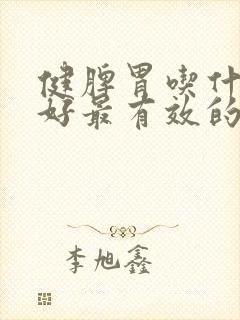 健脾胃喫什
好最有效的
李旭鑫